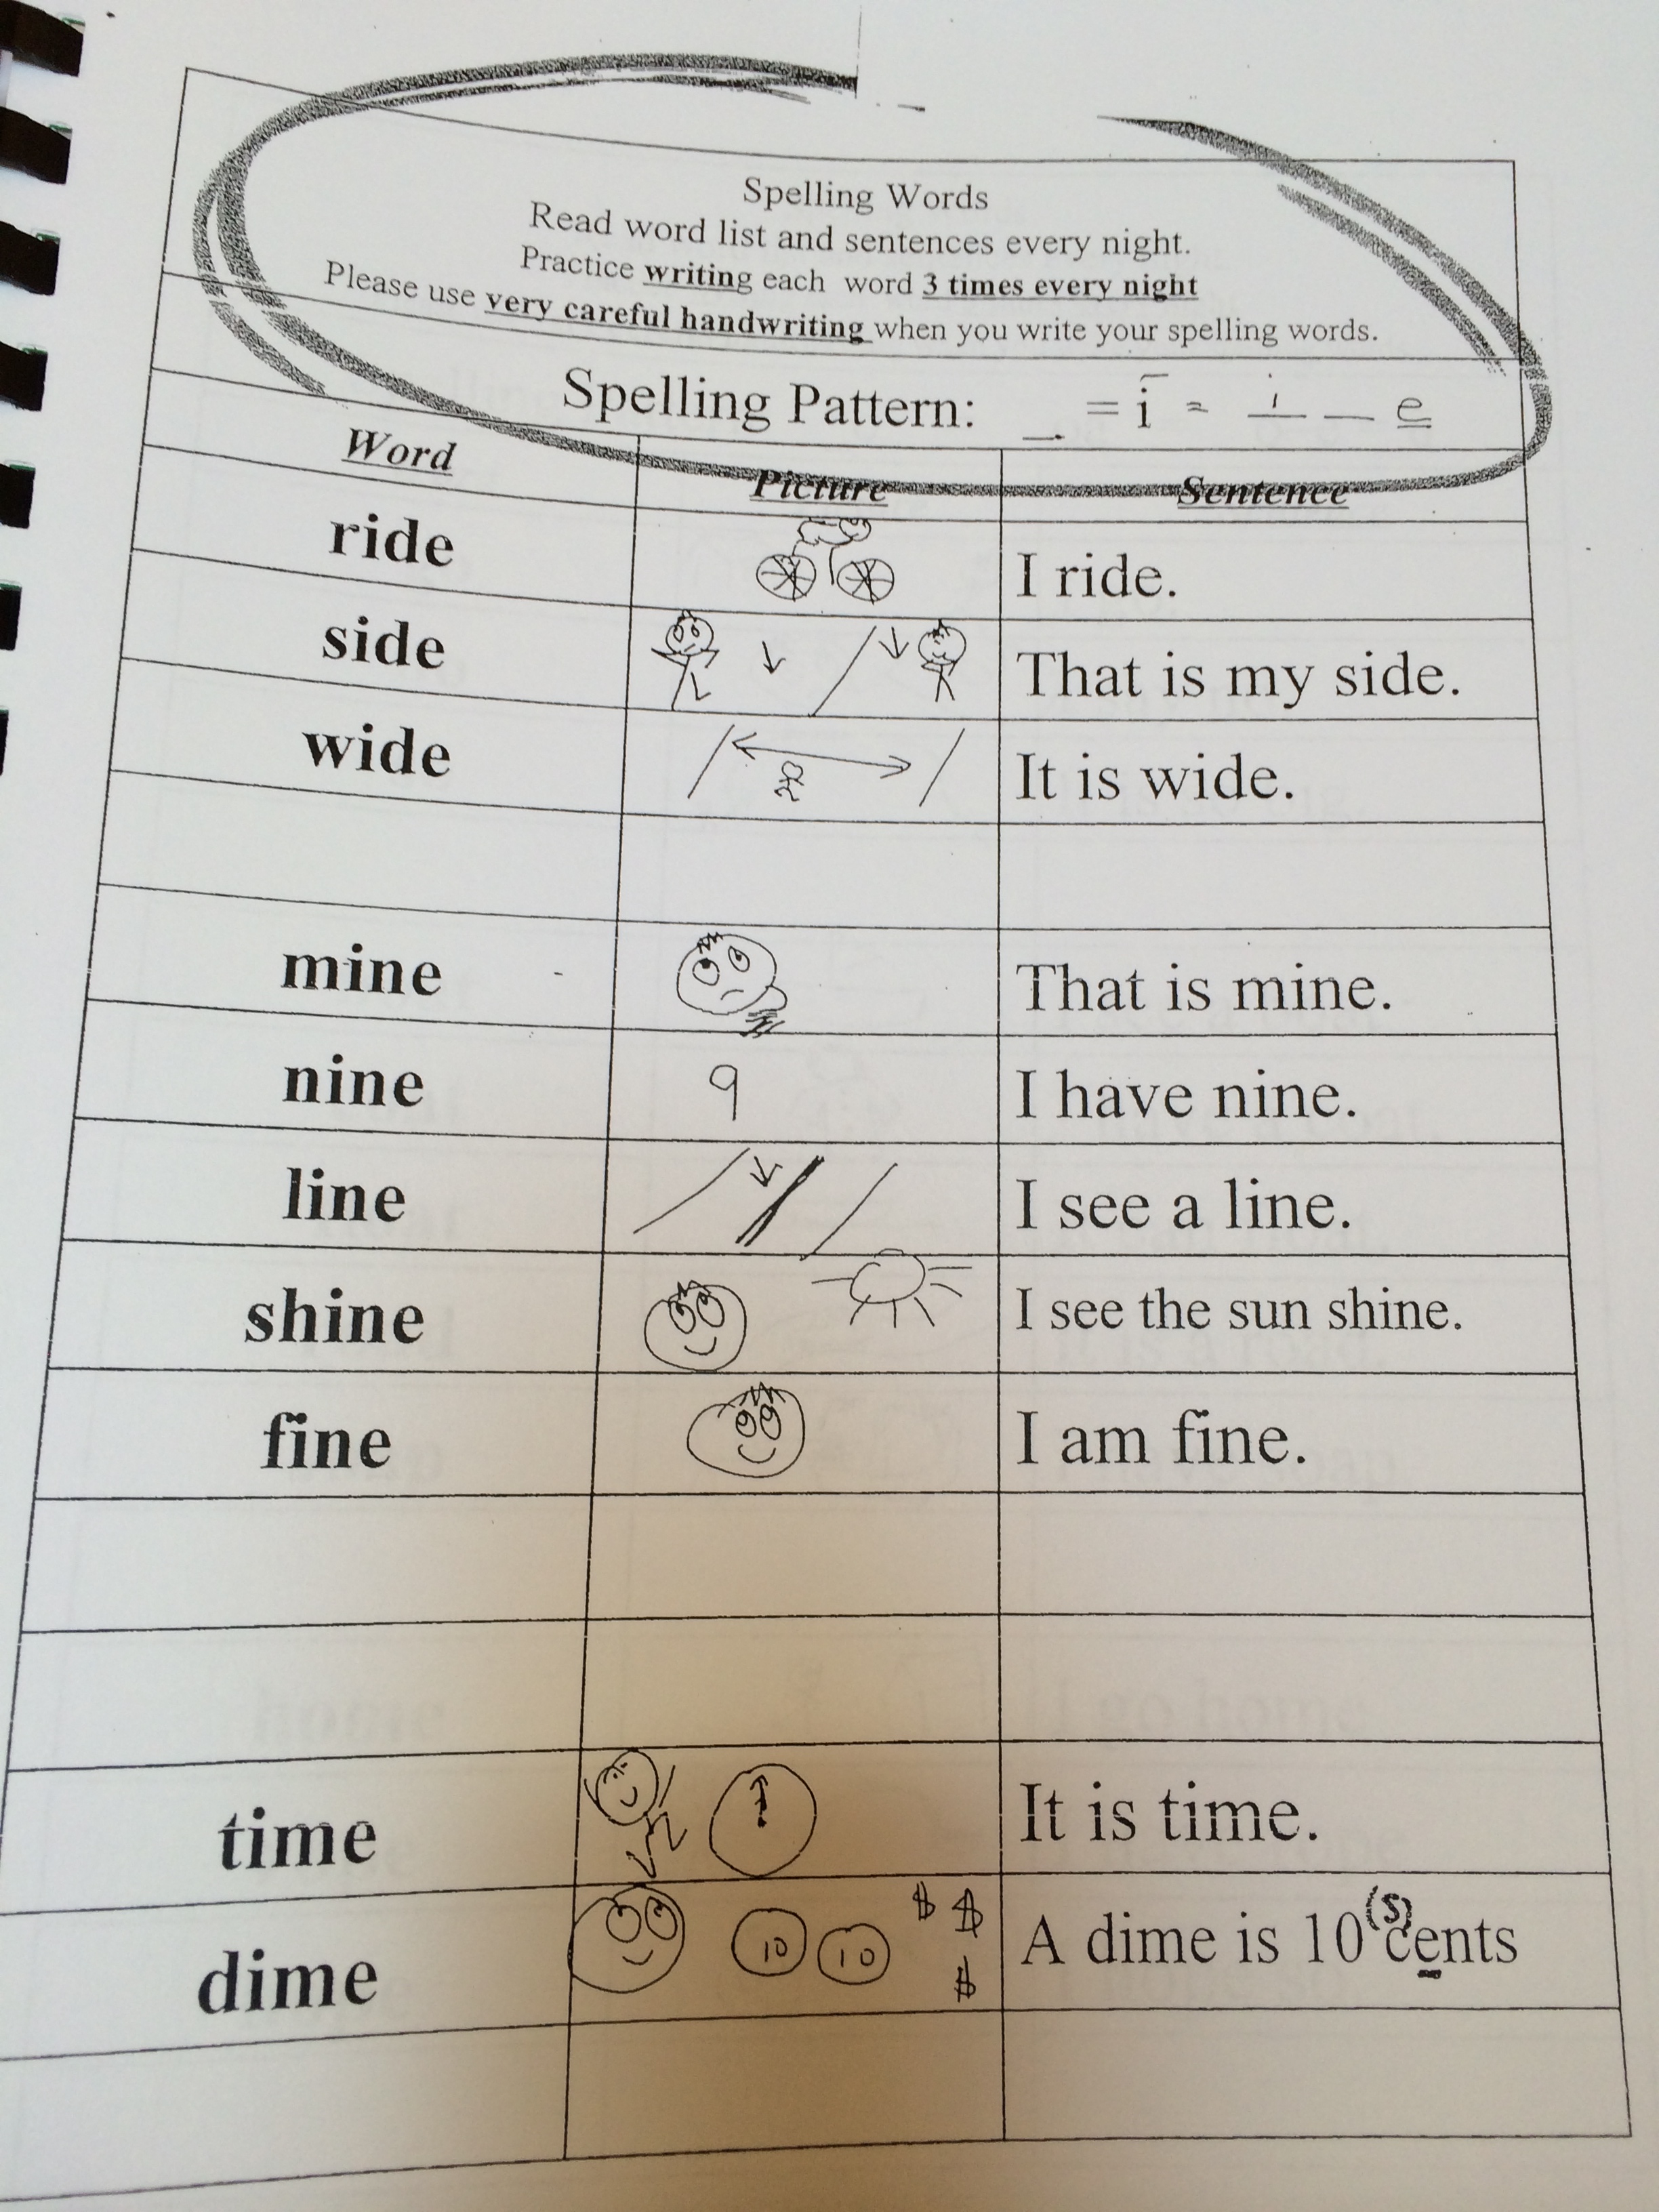 Spelling Words
Read word list and sentences every night.
Practice writing each word 3 times every night
Please use very careful handwriting when you write your spelling words.
Spelling Pattern: _ = ī = i _ e
Word Picture Sentence
ride I ride.
side That is my side.
wide It is wide.
mine That is mine.
nine 9 I have nine.
line I see a line.
shine I see the sun shine.
fine I am fine.
home I go home
time It is time.
dime 10 10 $ $ $ A dime is 10 (s)cents